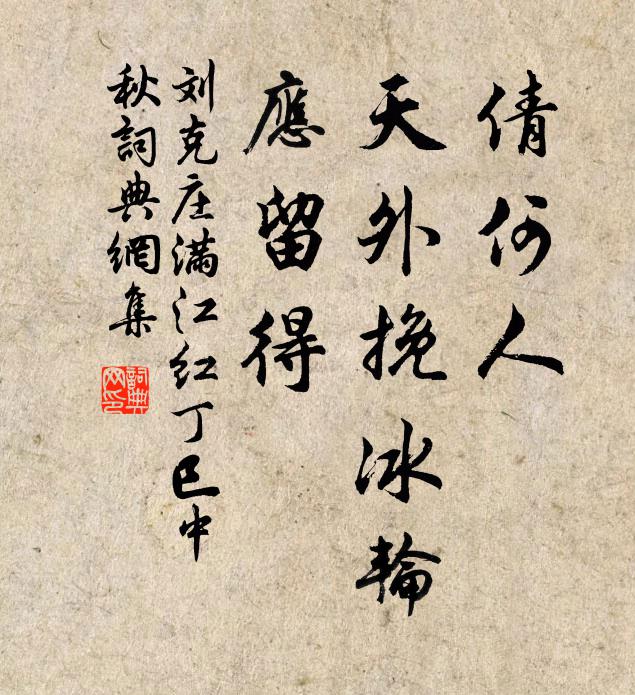 倩何人
天外挽冰輪
應留得
刘克庄满江红丁巳中
秋詞典網集
詞典
网印